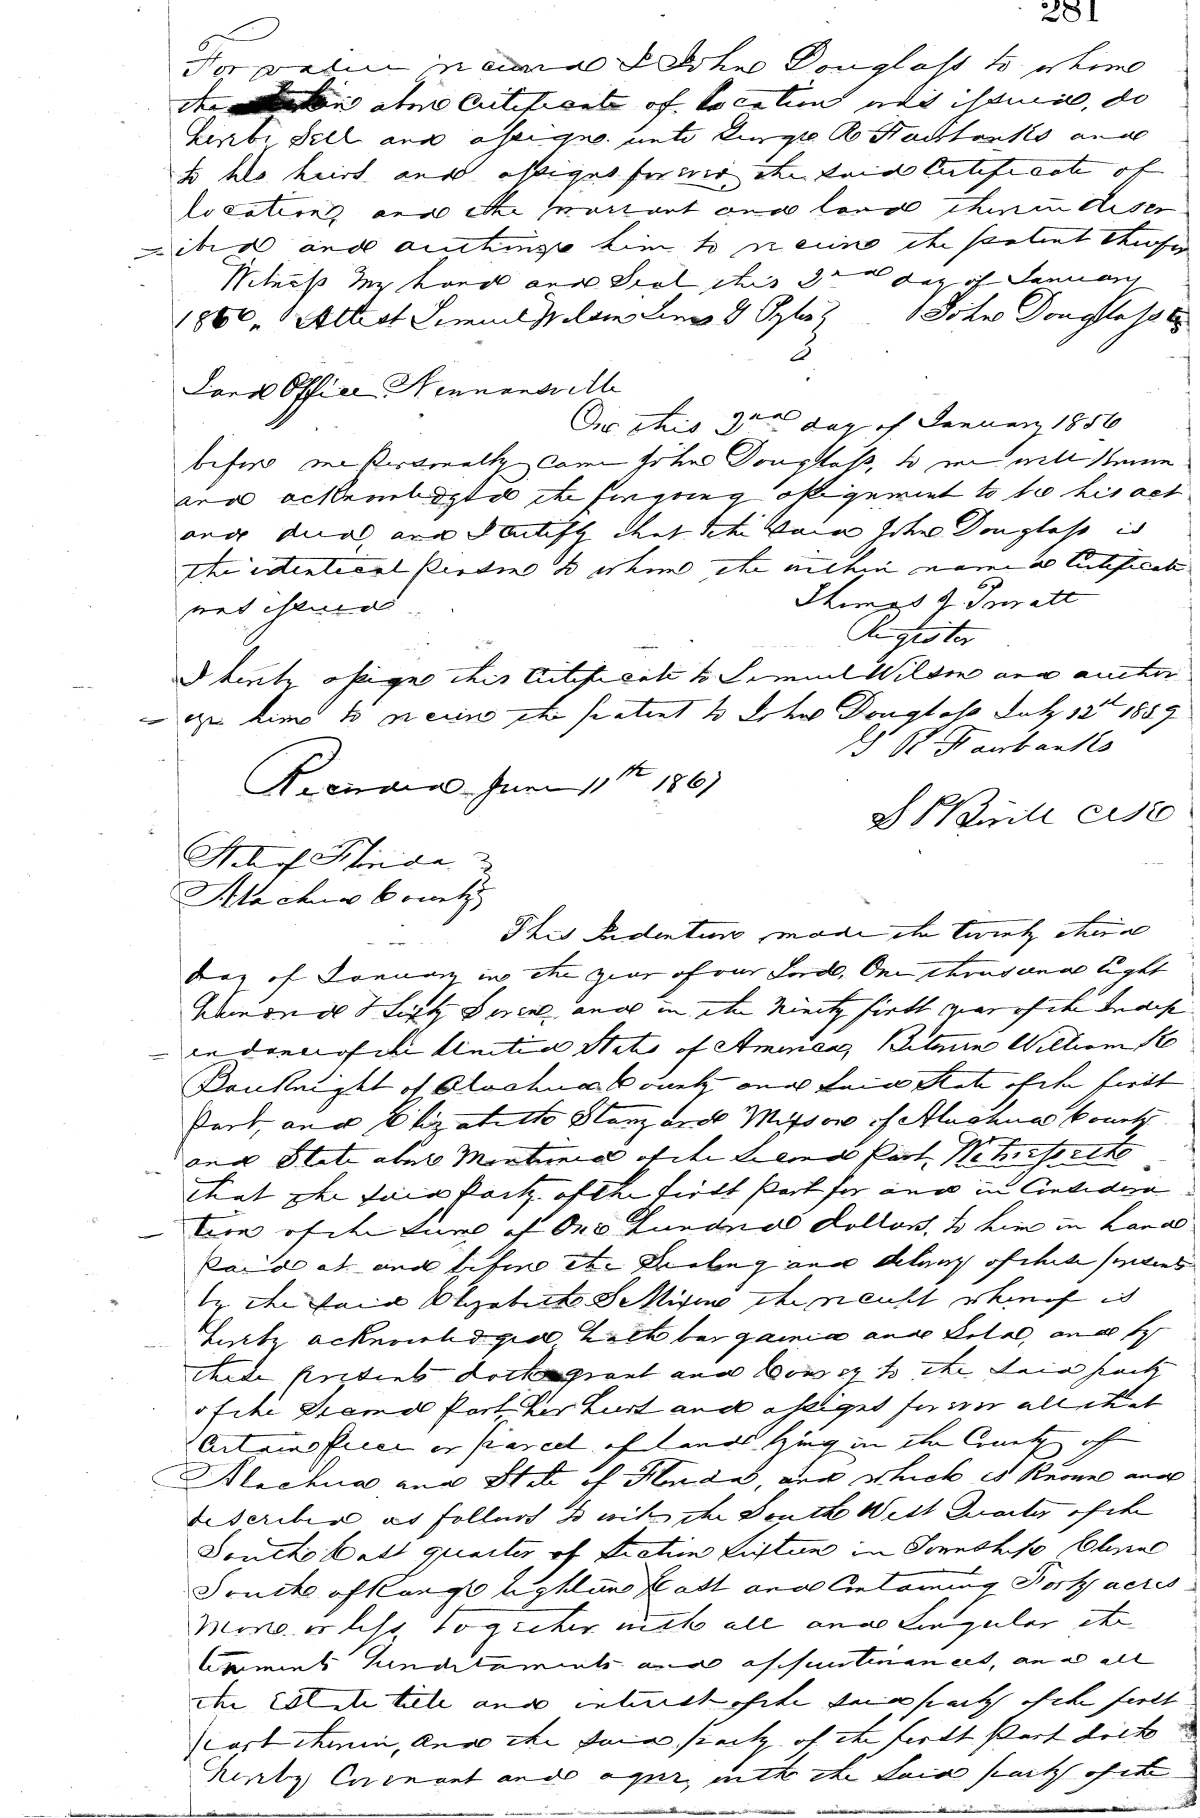 281
For value received I John Douglass to whom
the above Certificate of location was issued, do
hereby Sell and assign unto George R Fairbanks and
to his heirs and assigns forever the said Certificate of
location, and the warrant and land therein descr
ibed and authorize him to receive the patent therefor
Witness my hand and Seal this 2nd day of January
1856. Attest Lemuel Wilson John Douglass
Land Office Newnansville
On this 2nd day of January 1856
before me Personally came John Douglass, to me well Known
and acknowledged the foregoing assignment to be his act
and deed, and I certify that the said John Douglass is
the identical Person to whom the within named Certificate
was issued Thomas J Prevatt
Register
I hereby assign this Certificate to Lemuel Wilson and author
ize him to receive the patent to John Douglass July 12th 1859
G R Fairbanks
Recorded June 11th 1867
State of Florida
Alachua County
This Indenture made the twenty third
day of January in the year of our Lord, One thousand Eight
hundred & Sixty Seven, and in the Ninety first year of the Indep
endence of the United States of America, Between William
Bouknight of Alachua County and said State of the first
Part, and Elizabeth Mixson of Alachua County
and State above Mentioned of the Second Part, Witnesseth
that the said Party of the first Part for and in Considera
tion of the sum of One hundred dollars, to him in hand
Paid at and before the Sealing and delivery of these presents
by the said Elizabeth S Mixson the receipt whereof is
hereby acknowledged hath bargained and Sold, and by
these presents doth grant and Convey to the said party
of the Second Part, her heirs and assigns forever all that
Certain piece or parcel of land lying in the County of
Alachua and State of Florida, and which is Known and
described as follows to wit, the South West Quarter of the
South East quarter of Section Sixteen in Township Eleven
South of Range Eighteen East and Containing Forty acres
More or less, together with all and Singular the
tenements hereditaments and appurtenances, and all
the Estate title and interest of the said party of the first
part therein, and the said party of the first Part doth
hereby Covenant and agree, with the said party of the